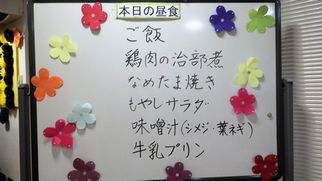 本日の昼食
ご飯
鶏肉の治部煮
なめたま焼き
もやしサラダ
味噌汁(シメジ・葉ネギ)
牛乳プリン